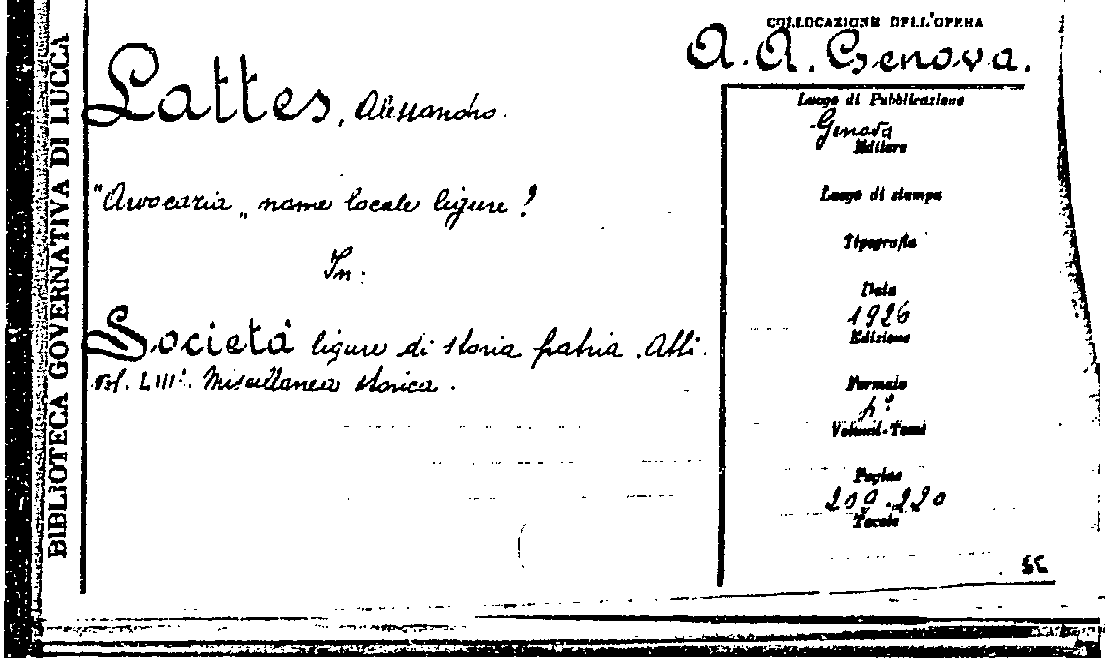 BIBLIOTECA GOVERNATIVA DI LUCCA
COLLOCAZIONE DELL'OPERA
A. A. Genova.
Lattes, Alessandro.
"Avvocaria„ nome locale ligure?
In:
Società ligure di storia patria. Atti.
vol. LIII°. Miscellanea storica.
Luogo di Pubblicazione
Genova
Editore
Luogo di stampa
Tipografia
Data
1926
Edizione
Formato
Volumi-Tomi
Pagine
209-220
Tavole